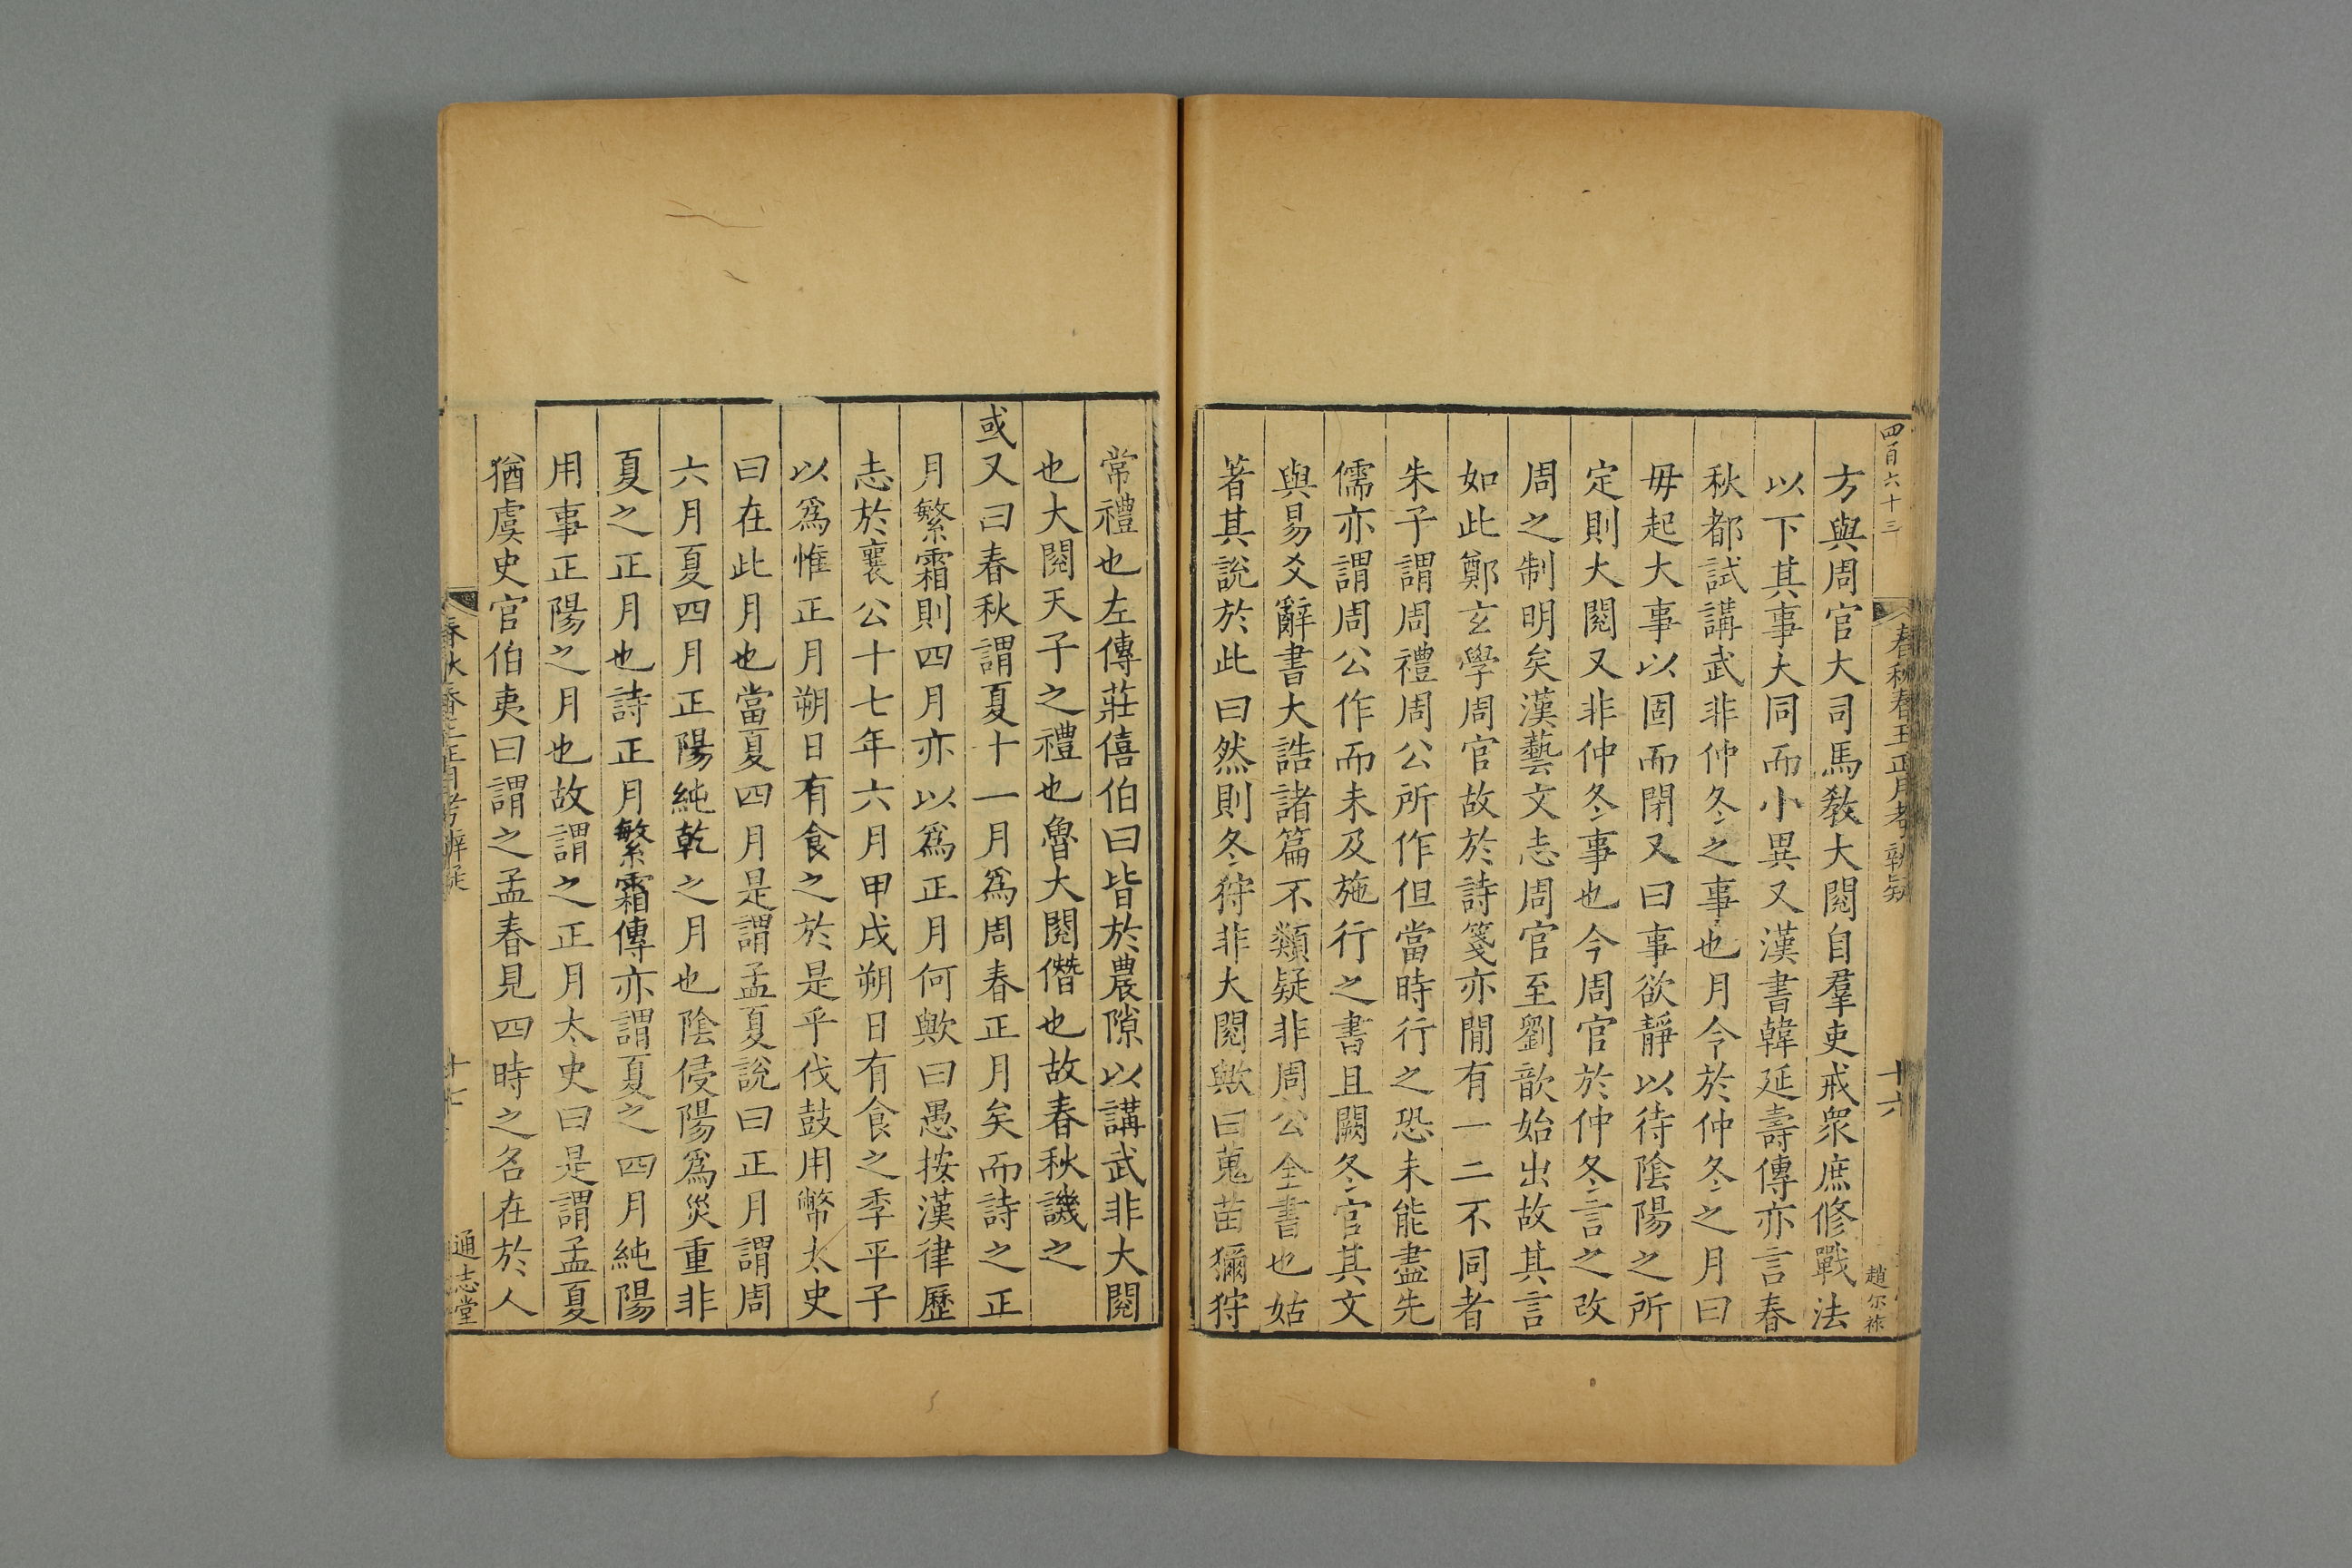 四百六十三
春秋春王正月考辨疑
十六
趙尔祿
方與周官大司馬敎大閱自羣吏戒衆庶修戰法
以下其事大同而小異又漢書韓延壽傳亦言春
秋都試講武非仲冬之事也月令於仲冬之月曰
毋起大事以固而閉又曰事欲靜以待陰陽之所
定則大閱又非仲冬事也今周官於仲冬言之改
周之制明矣漢藝文志周官至劉歆始出故其言
如此鄭玄學周官故於詩箋亦閒有一二不同者
朱子謂周禮周公所作但當時行之恐未能盡先
儒亦謂周公作而未及施行之書且闕冬官其文
與易爻辭書大誥諸篇不類疑非周公全書也姑
著其說於此曰然則冬狩非大閱歟曰蒐苗獮狩
常禮也左傳莊僖伯曰皆於農隙以講武非大閱
也大閱天子之禮也魯大閱僭也故春秋譏之
或又曰春秋謂夏十一月爲周春正月矣而詩之正
月繁霜則四月亦以爲正月何歟曰愚按漢律歷
志於襄公十七年六月甲戌朔日有食之季平子
以爲惟正月朔日有食之於是乎伐鼓用幣太史
曰在此月也當夏四月是謂孟夏說曰正月謂周
六月夏四月正陽純乾之月也陰侵陽爲災重非
夏之正月也詩正月繁霜傳亦謂夏之四月純陽
用事正陽之月也故謂之正月太史曰是謂孟夏
猶虞史官伯夷曰謂之孟春見四時之名在於人
春秋春王正月考辨疑
十七
通志堂